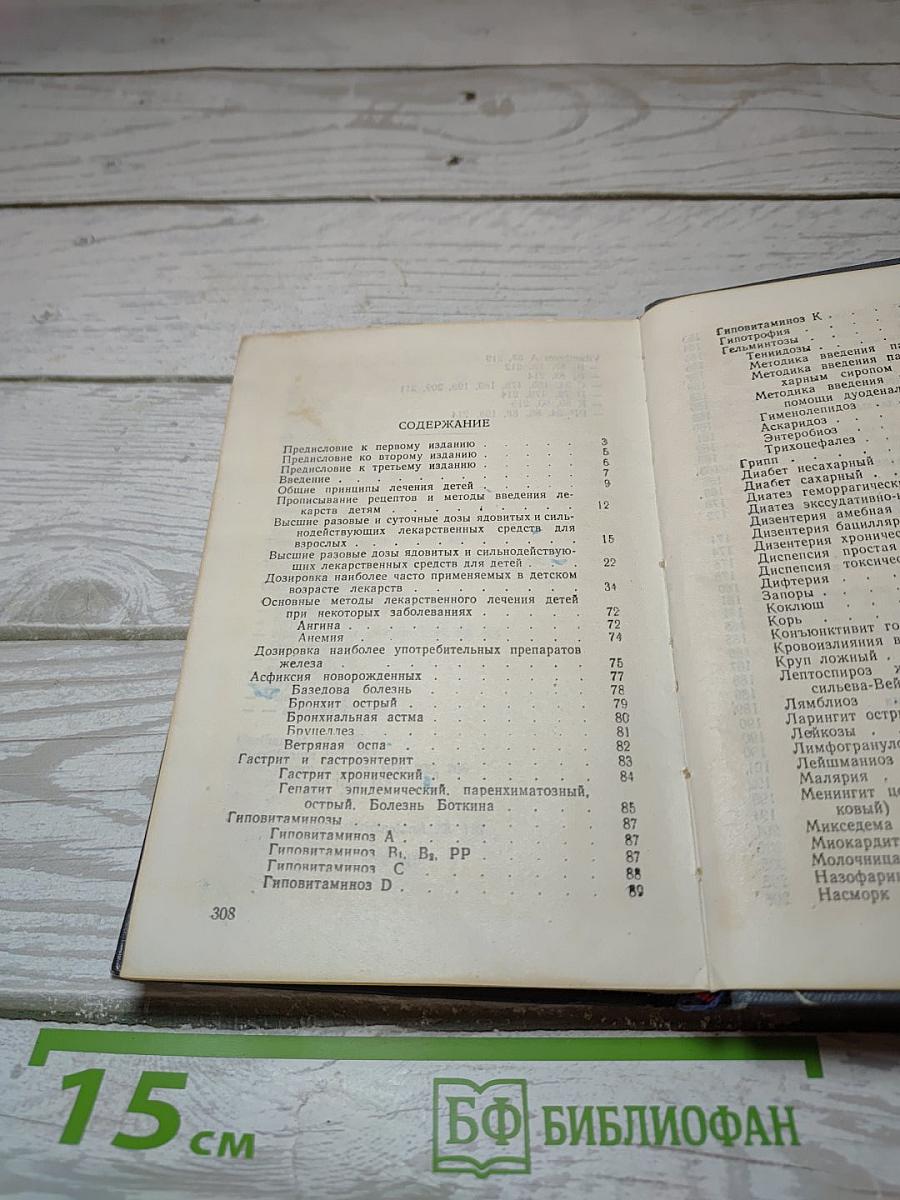 СОДЕРЖАНИЕ
Предисловие к первому изданию . . . . . 3
Предисловие ко второму изданию . . . . . 5
Предисловие к третьему изданию . . . . . 6
Введение . . . . . . . . . . . 7
Общие принципы лечения детей . . . . . 9
Прописывание рецептов и методы введения ле-
карств детям . . . . . . . . . 12
Высшие разовые и суточные дозы ядовитых и силь-
нодействующих лекарственных средств для
взрослых . . . . . . . . . . 15
Высшие разовые дозы ядовитых и сильнодействую-
щих лекарственных средств для детей . . . 22
Дозировка наиболее часто применяемых в детском
возрасте лекарств . . . . . . . . 34
Основные методы лекарственного лечения детей
при некоторых заболеваниях . . . . . 72
Ангина . . . . . . . . . . 72
Анемия . . . . . . . . . . 74
Дозировка наиболее употребительных препаратов
железа . . . . . . . . . . . 75
Асфиксия новорожденных . . . . . . . 77
Базедова болезнь . . . . . . . . 78
Бронхит острый . . . . . . . . 79
Бронхиальная астма . . . . . . . 80
Бруцеллез . . . . . . . . . . 81
Ветряная оспа . . . . . . . . . 82
Гастрит и гастроэнтерит . . . . . . . 83
Гастрит хронический . . . . . . . 84
Гепатит эпидемический, паренхиматозный,
острый. Болезнь Боткина . . . . . 85
Гиповитаминозы . . . . . . . . . . 87
Гиповитаминоз А . . . . . . . . 87
Гиповитаминоз B₁, B₂, PP . . . . . . 87
Гиповитаминоз С . . . . . . . . 88
Гиповитаминоз D . . . . . . . . 89
308
Гиповитаминоз К . . . .
Гипотрофия . . . .
Гельминтозы . . . .
Тениидозы . . . .
Методика введения
Методика введения
харным сиропом
Методика введения
помощи
Гименолепидоз . .
Аскаридоз . . .
Энтеробиоз . . .
Трихоцефалез . .
Грипп . . . .
Диабет несахарный
Диабет сахарный .
Диатез
Диатез
Дизентерия амебная
Дизентерия
Дизентерия
Диспепсия простая
Диспепсия
Дифтерия . . .
Запоры . . . .
Коклюш . . .
Корь . . . .
Конъюнктивит
Кровоизлияния
Круп ложный . .
Лептоспироз

Лямблиоз
Ларингит
Лейкозы . . .

Лейшманиоз
Малярия . .
Менингит
ковый)
Микседема
Миокардит
Молочница

Насморк
15 см
БФ БИБЛИОФАН